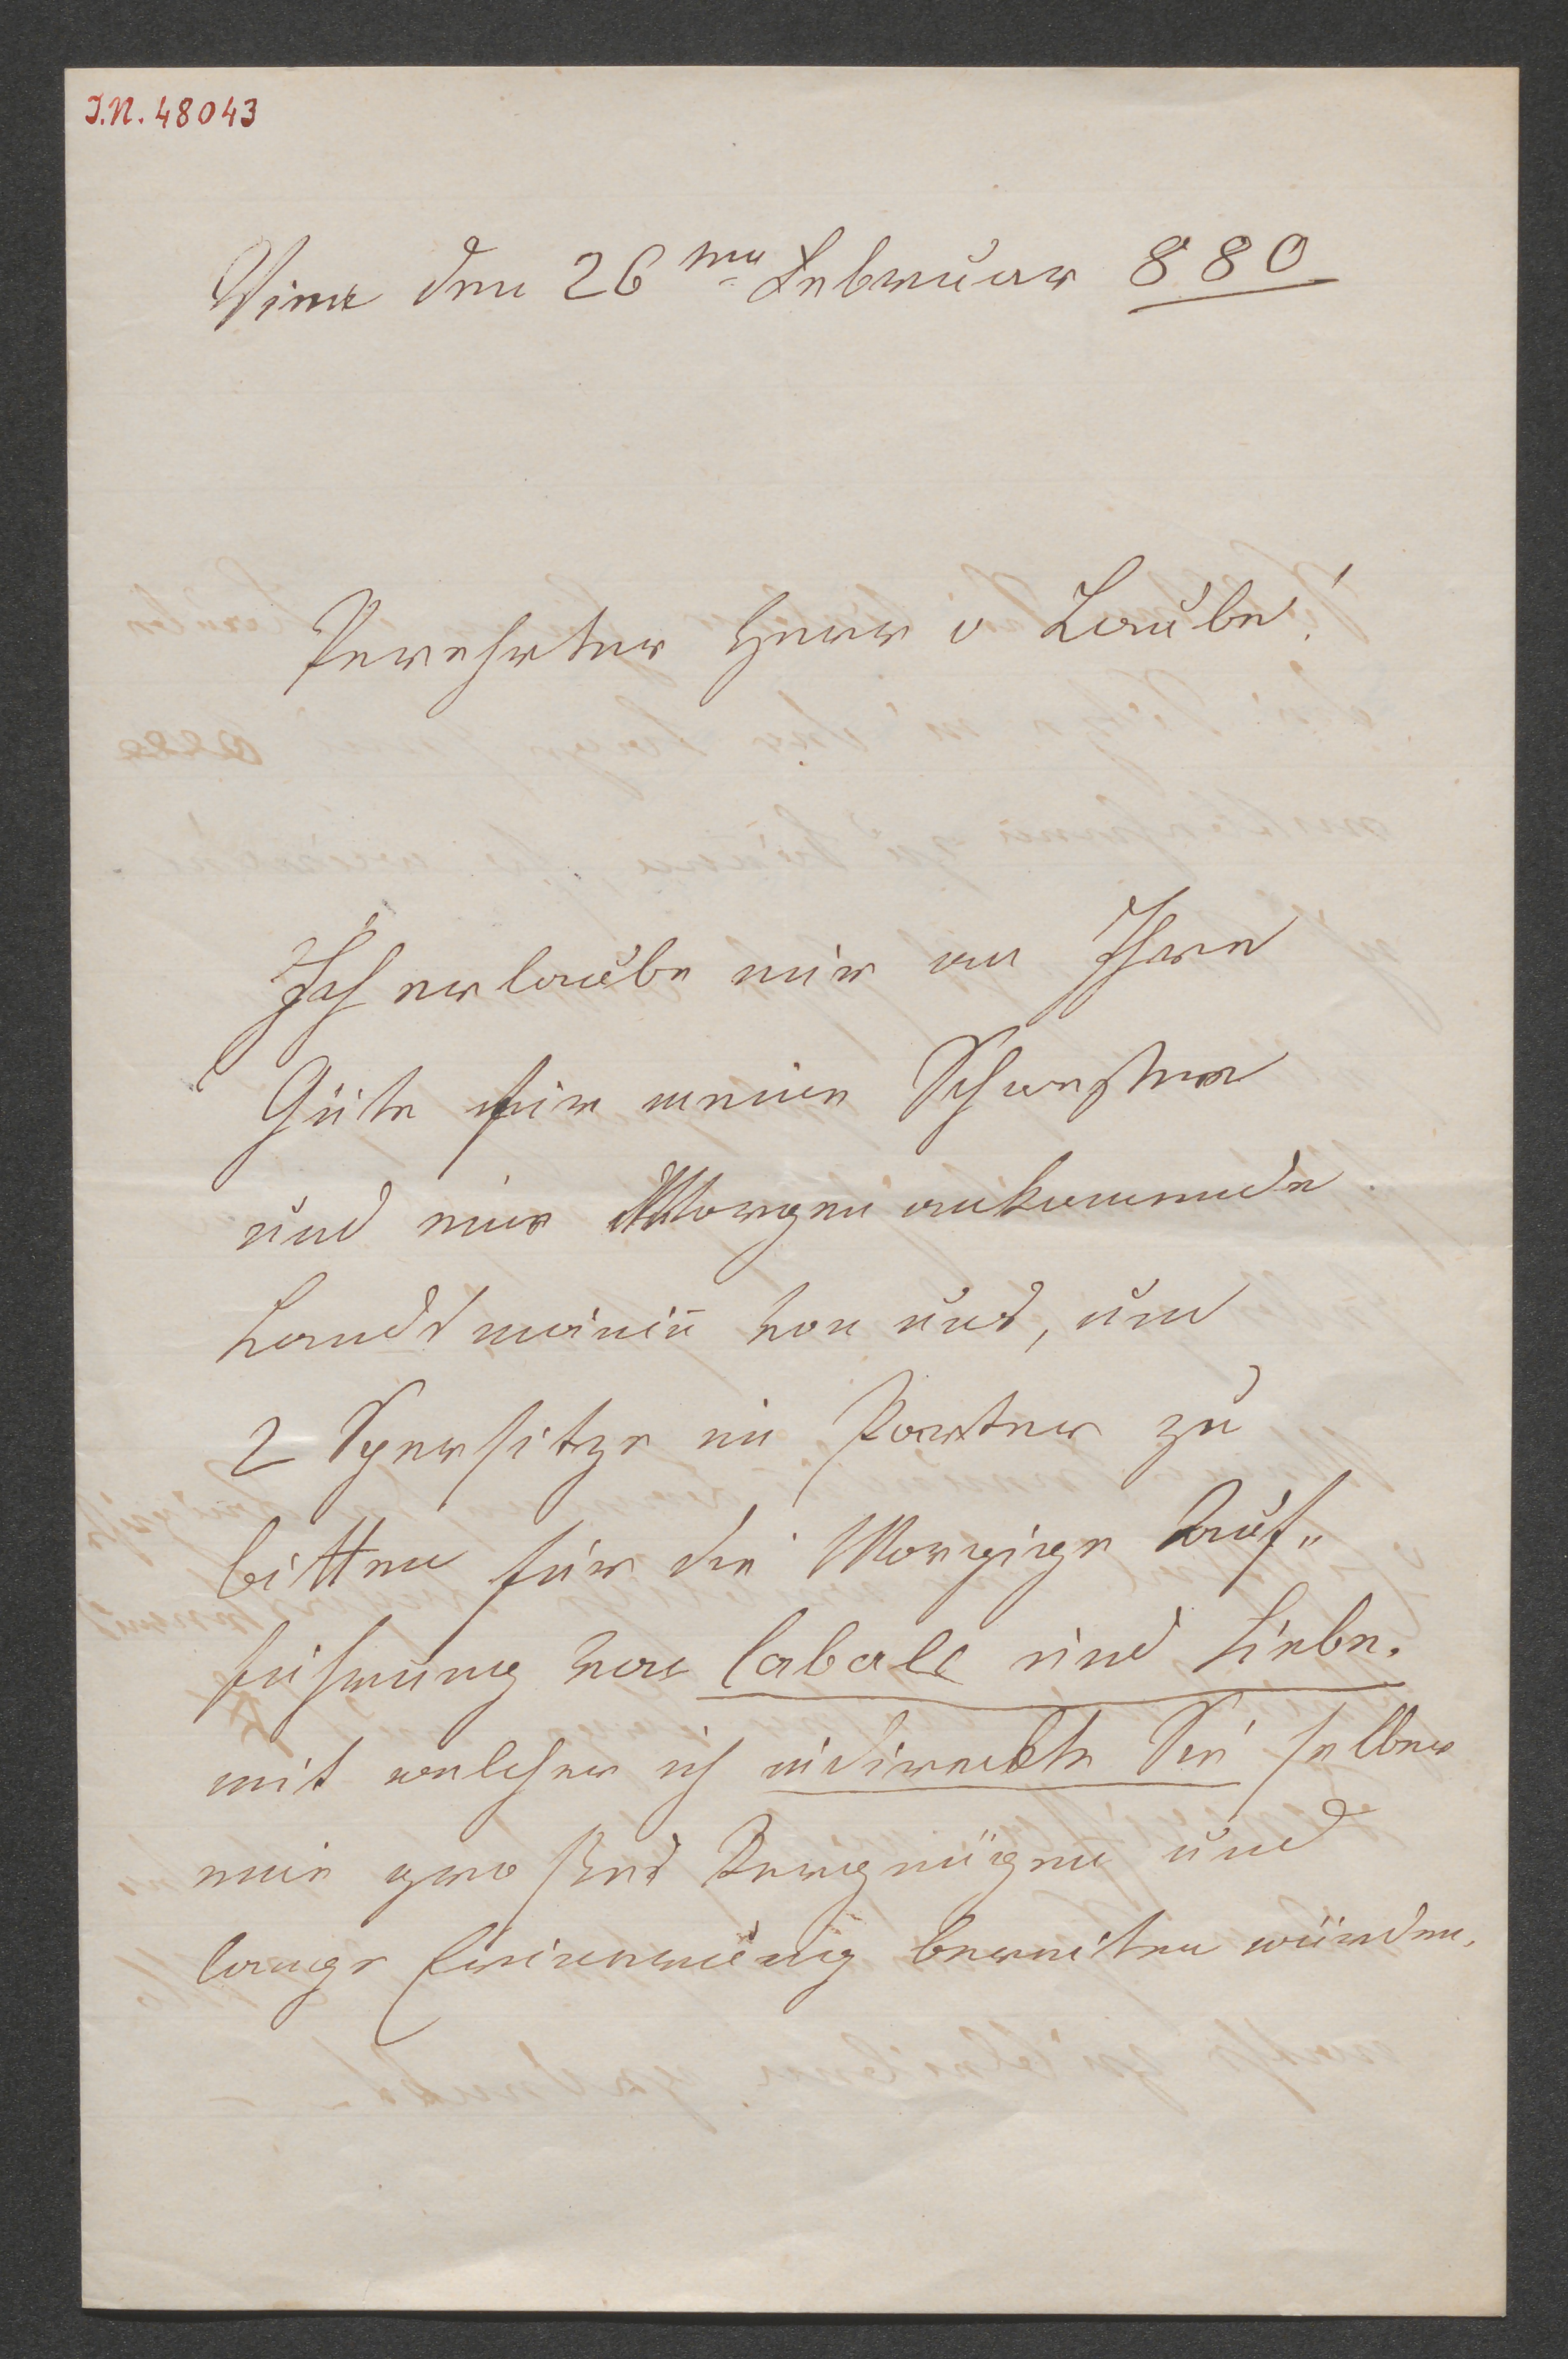 I.N. 48043
Wien den 26ten Februar 880
Verehrter Herr v Laube!
Ich erlaube mir an Ihre
Güte für meine Schwester
und eine Morgen ankommende
Landsmänin von uns, um
2 Spersitze im Parter zu
bitten für die Morgige Auf„
führung von Cabale und Liebe.
mit welcher ich indireckte Sie selber
mir großes Vergnügen und
lange Erinnerung bereiten würden.